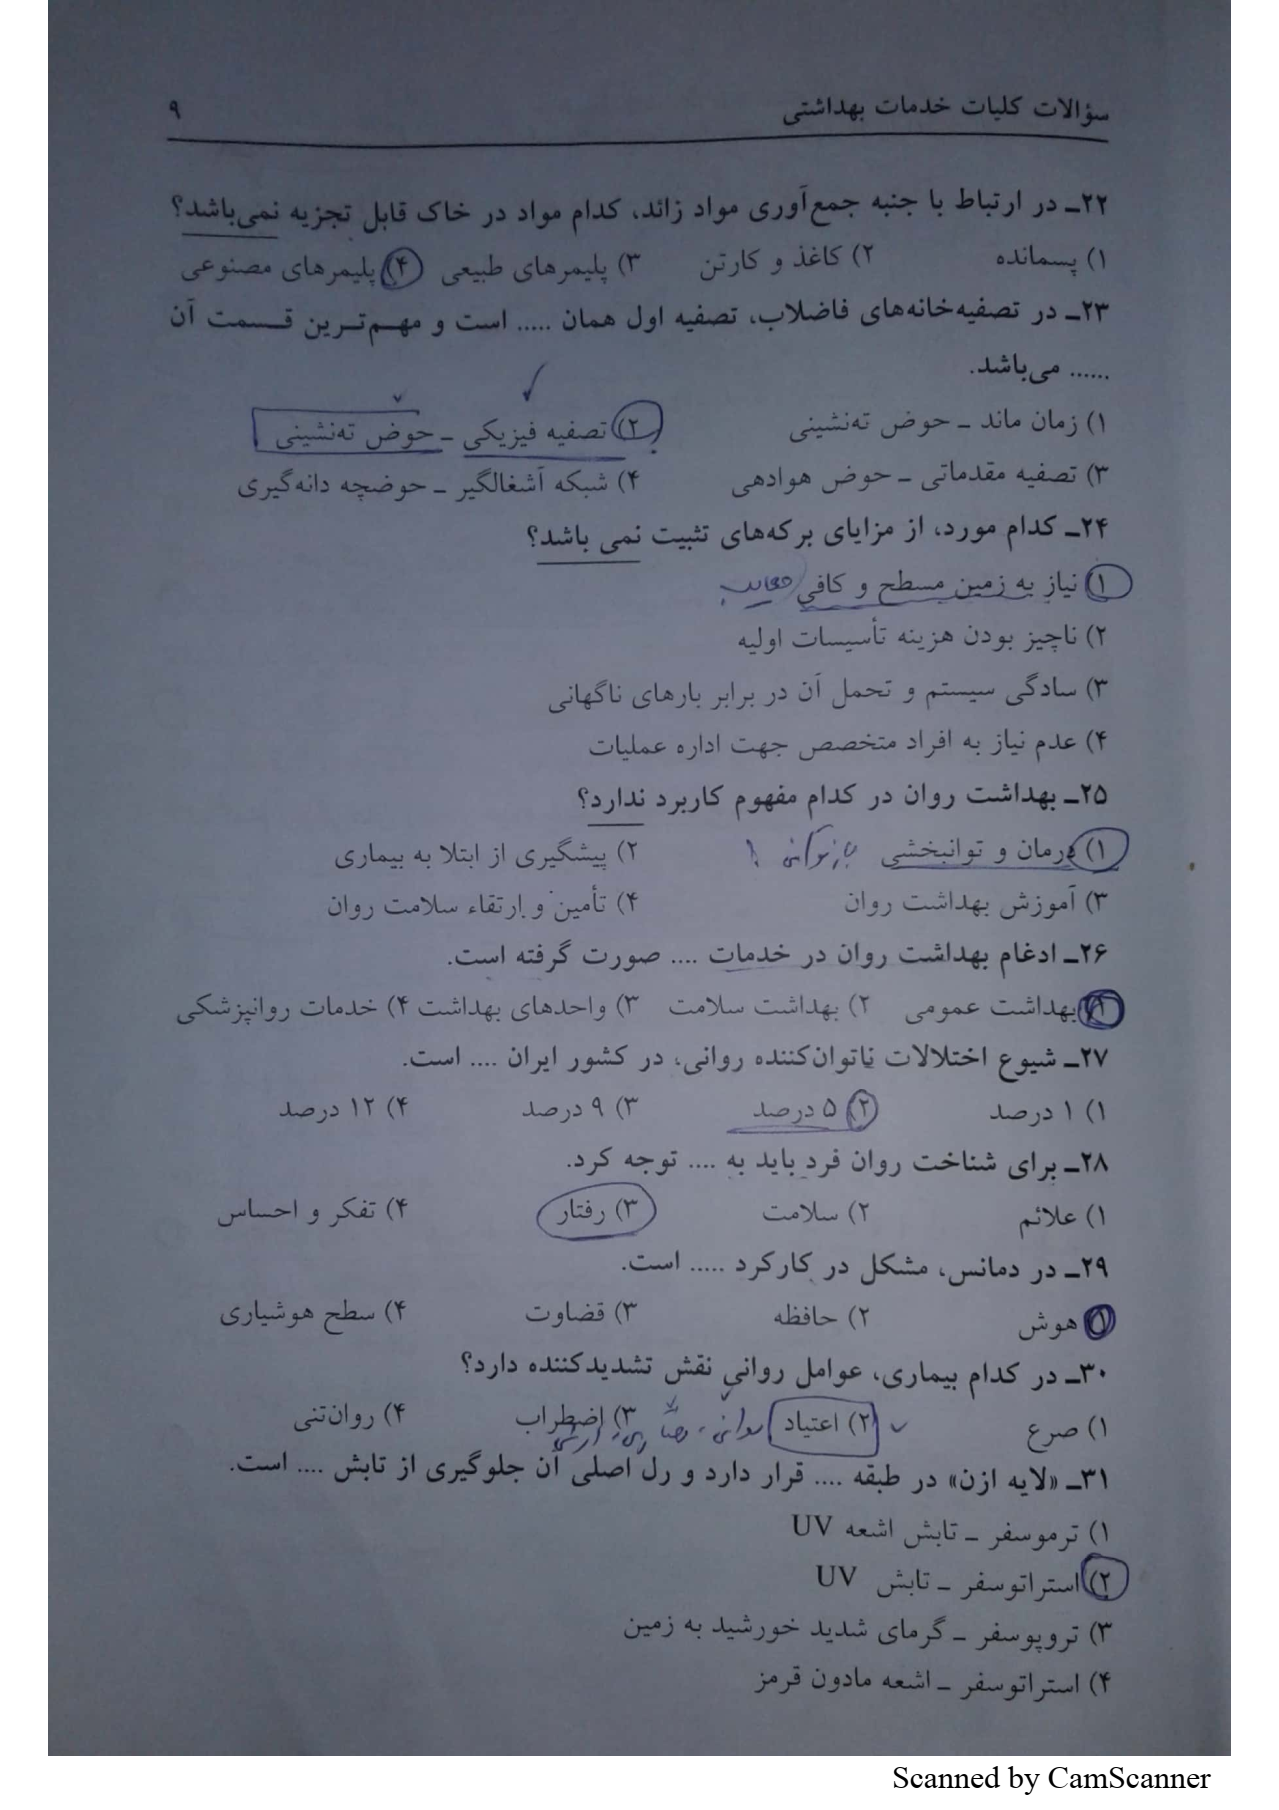 سؤالات کلیات خدمات بهداشتی ۹
۲۲ـ در ارتباط با جنبه جمع‌آوری مواد زائد، کدام مواد در خاک قابل تجزیه نمی‌باشد؟
۱) پسمانده ۲) کاغذ و کارتن ۳) پلیمرهای طبیعی ۴) پلیمرهای مصنوعی
۲۳ـ در تصفیه‌خانه‌های فاضلاب، تصفیه اول همان ..... است و مهم‌ترین قسمت آن
...... می‌باشد.
۱) زمان ماند ـ حوض ته‌نشینی ۲) تصفیه فیزیکی ـ حوض ته‌نشینی
۳) تصفیه مقدماتی ـ حوض هوادهی ۴) شبکه آشغالگیر ـ حوضچه دانه‌گیری
۲۴ـ کدام مورد، از مزایای برکه‌های تثبیت نمی باشد؟
۱) نیاز به زمین مسطح و کافی معایب
۲) ناچیز بودن هزینه تأسیسات اولیه
۳) سادگی سیستم و تحمل آن در برابر بارهای ناگهانی
۴) عدم نیاز به افراد متخصص جهت اداره عملیات
۲۵ـ بهداشت روان در کدام مفهوم کاربرد ندارد؟
۱) درمان و توانبخشی بازتوانی ! ۲) پیشگیری از ابتلا به بیماری
۳) آموزش بهداشت روان ۴) تأمین و ارتقاء سلامت روان
۲۶ـ ادغام بهداشت روان در خدمات .... صورت گرفته است.
۱) بهداشت عمومی ۲) بهداشت سلامت ۳) واحدهای بهداشت ۴) خدمات روانپزشکی
۲۷ـ شیوع اختلالات ناتوان‌کننده روانی، در کشور ایران .... است.
۱) ۱ درصد ۲) ۵ درصد ۳) ۹ درصد ۴) ۱۲ درصد
۲۸ـ برای شناخت روان فرد باید به .... توجه کرد.
۱) علائم ۲) سلامت ۳) رفتار ۴) تفکر و احساس
۲۹ـ در دمانس، مشکل در کارکرد ..... است.
۱) هوش ۲) حافظه ۳) قضاوت ۴) سطح هوشیاری
۳۰ـ در کدام بیماری، عوامل روانی نقش تشدیدکننده دارد؟
۱) صرع ۲) اعتیاد روانی ۳) اضطراب ۴) روان‌تنی
۳۱ـ «لایه ازن» در طبقه .... قرار دارد و رل اصلی آن جلوگیری از تابش .... است.
۱) ترموسفر ـ تابش اشعه UV
۲) استراتوسفر ـ تابش UV
۳) تروپوسفر ـ گرمای شدید خورشید به زمین
۴) استراتوسفر ـ اشعه مادون قرمز
Scanned by CamScanner